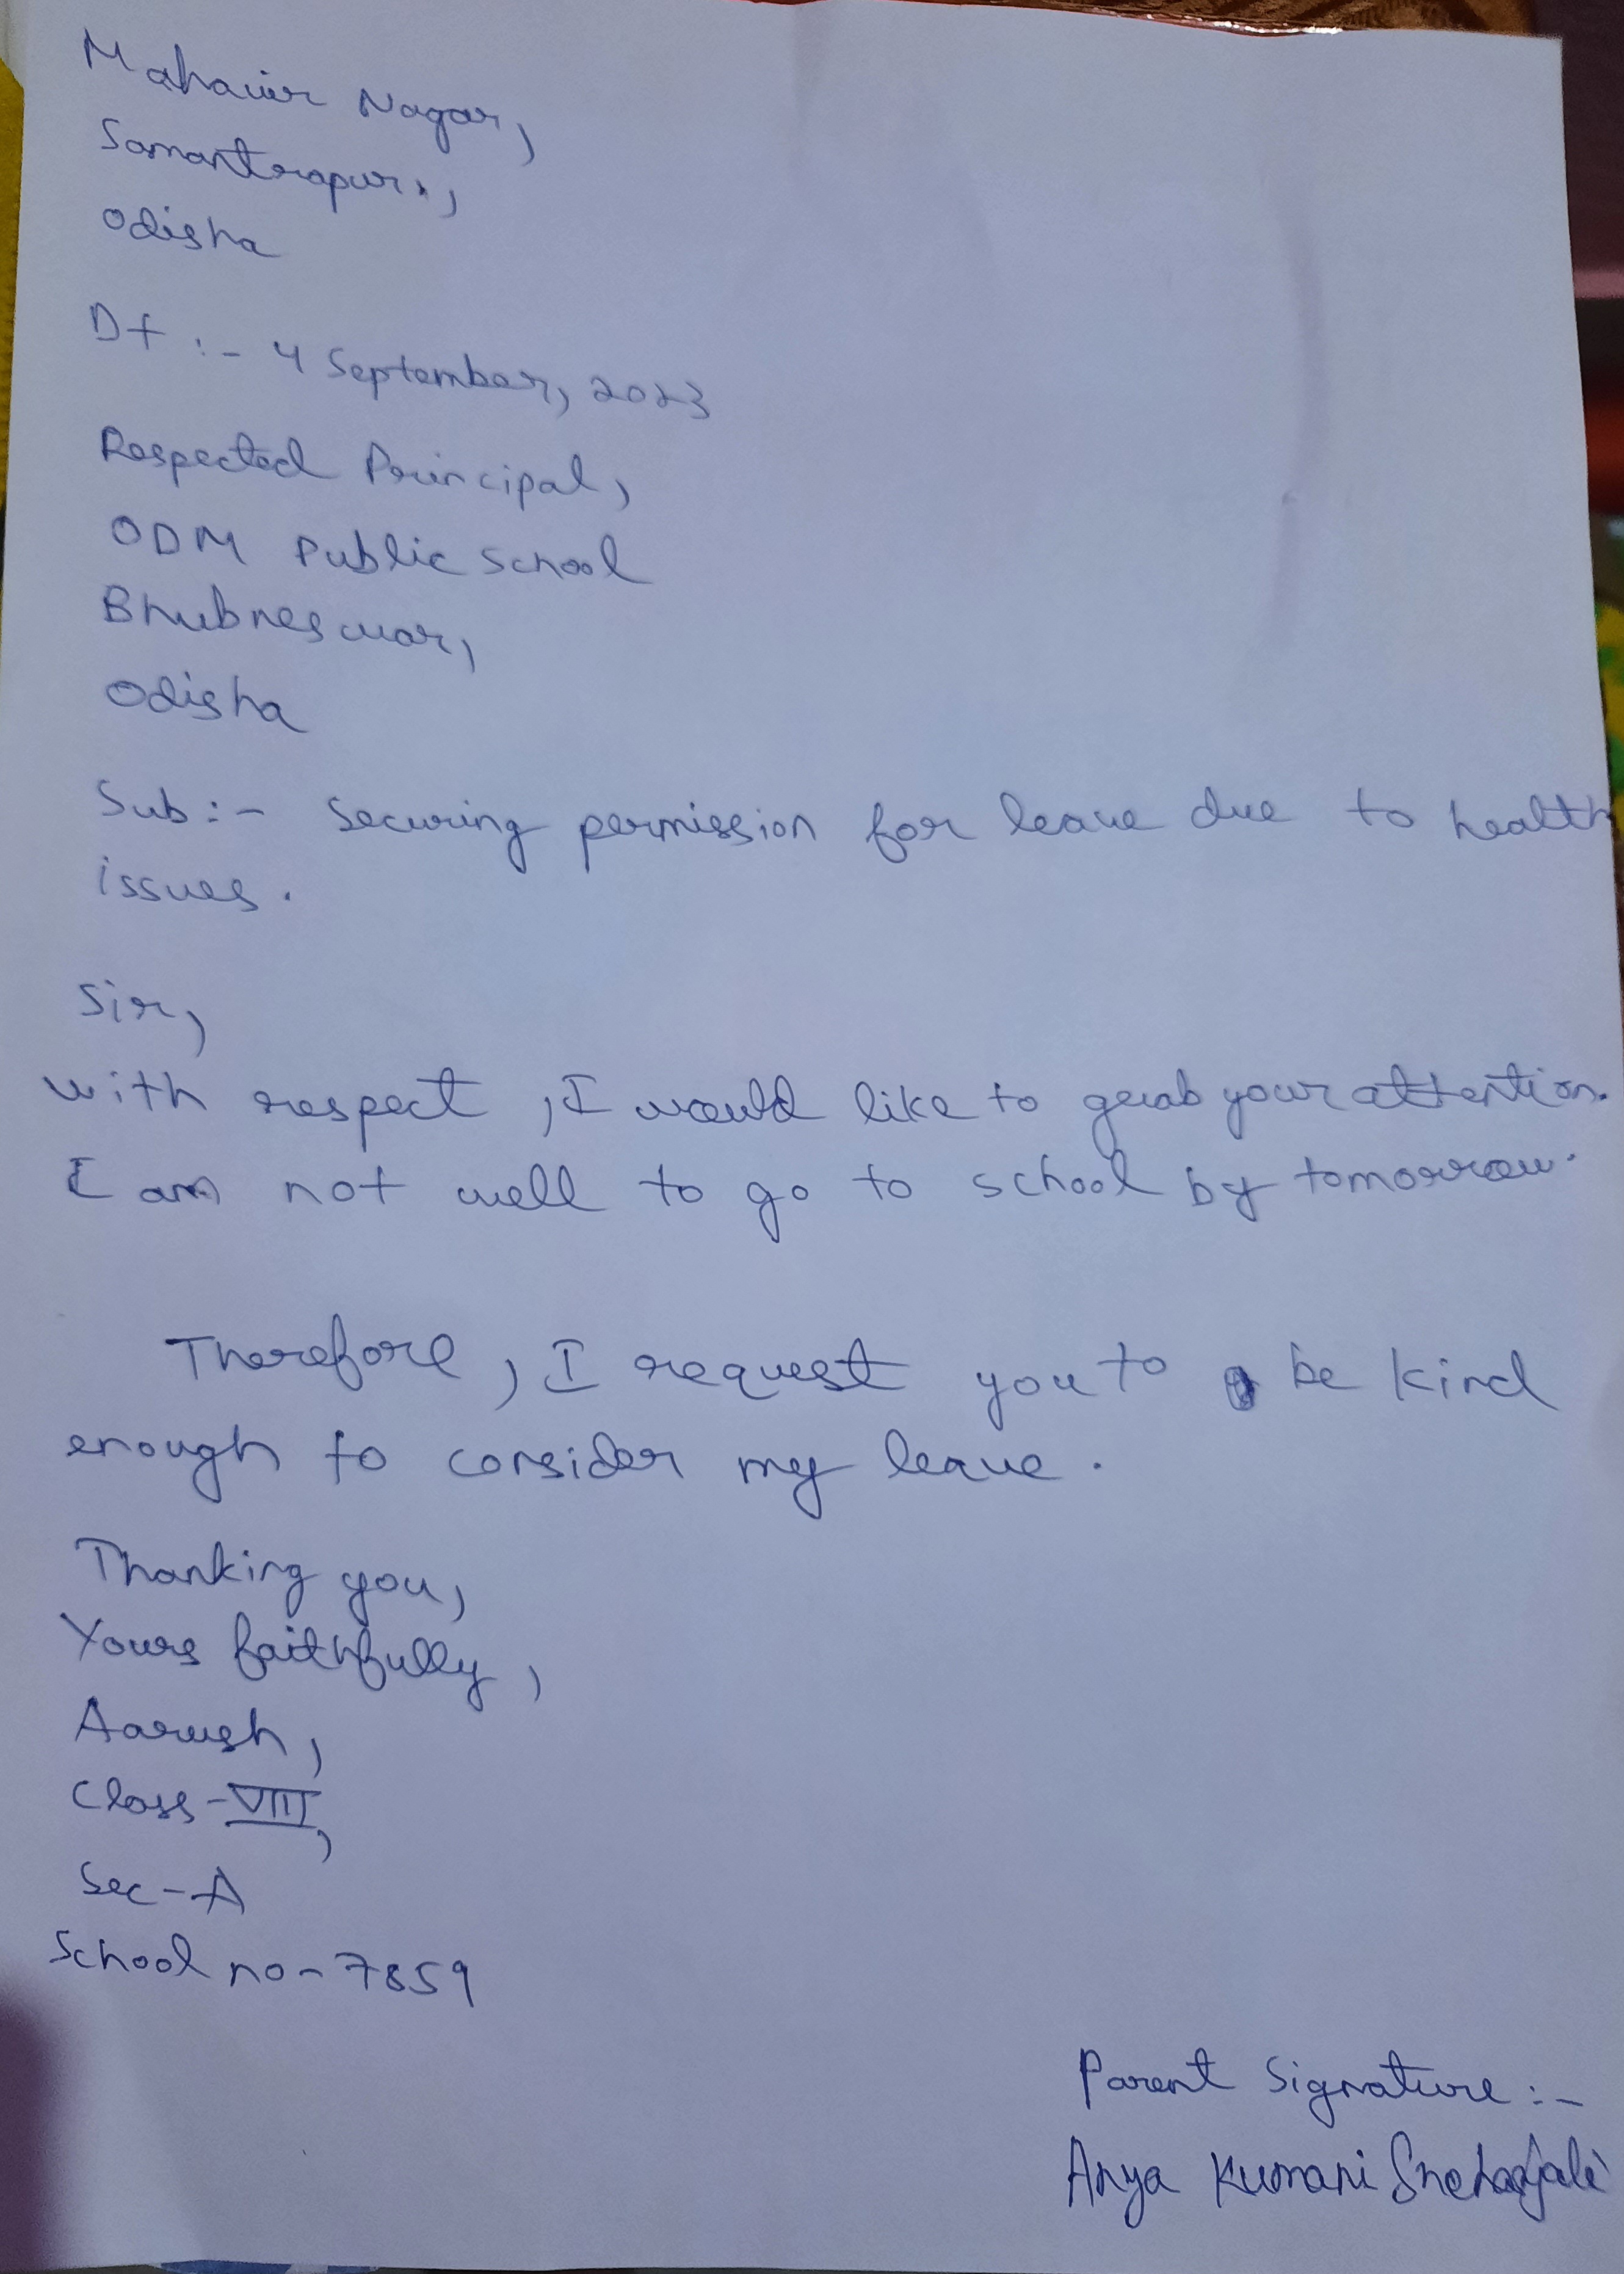 Mahavir Nagar,
Samantrapur,,
Odisha
Dt :- 4 September, 2023
Respected Principal,
ODM Public School
Bhubneswar,
Odisha
Sub :- Securing permission for leave due to health
issues.
Sir,
with respect, I would like to grab your attention.
I am not well to go to school by tomorrow.
Therefore, I request you to be kind
enough to consider my leave.
Thanking you,
Yours faithfully,
Aarush,
Class-VIII,
Sec-A
School no-7859
Parent Signature :-
Anya Kumari